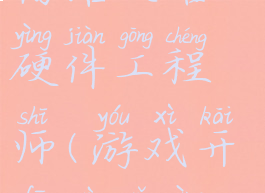 yìng jiàn gōng chéng
硬件工程
shī yóu xì kāi
师(游戏开